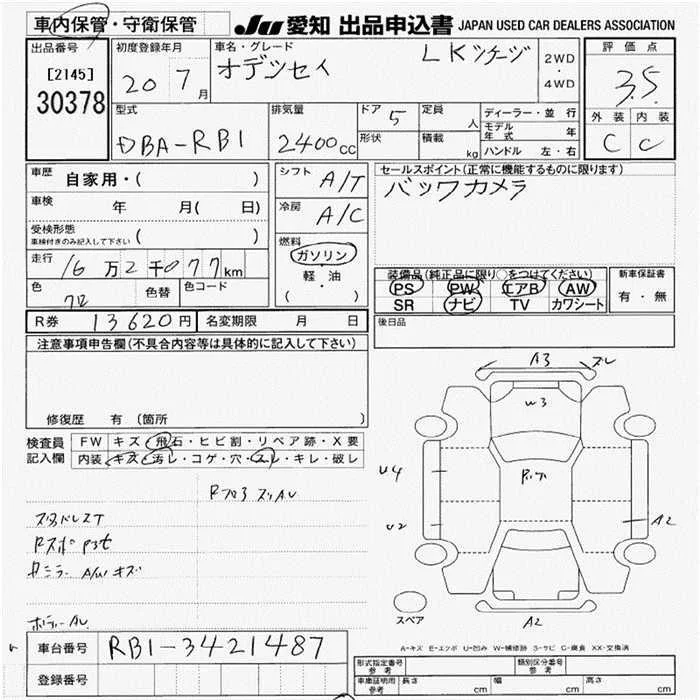 車内保管・守衛保管 JU 愛知 出品申込書 JAPAN USED CAR DEALERS ASSOCIATION
出品番号 初度登録年月 車名・グレード 評価点
[2145] 20 7月 オデッセイ 2WD・4WD 3.5
30378
型式 排気量 ドア 5 定員 人 ディーラー・並行 外装 内装
DBA-RB1 2400cc 形状 積載 kg モデル年式 年 C C
ハンドル 左・右
車歴 自家用・( ) シフト A/T セールスポイント(正常に機能するものに限ります)
車検 年 月( 日) 冷房 A/C バックカメラ
受検形態 車検付きのみ記入して下さい ( ) 燃料 ガソリン
走行 16万2千077km 軽・油 装備品(純正品に限り○をつけてください) 新車保証書
色 色替 色コード ( ) PS PW エアB AW 有・無
SR ナビ TV カワシート
R券 13620円 名変期限 月 日 後日品
注意事項申告欄(不具合内容等は具体的に記入して下さい)
修復歴 有 (箇所 )
検査員記入欄 FW キズ・飛石・ヒビ割・リペア跡・X要
内装 キズ・汚レ・コゲ・穴・スレ・キレ・破レ
A3 ズレ
W3
U4
U2 A2
スタッドレスT
ミラー A/W キズ
ボディーAU
スペア A2
A-キズ E-エクボ U-凹み W-補修跡 S-サビ C-腐食 XX-交換済
車台番号 RB1-3421487
登録番号
形式指定番号 参考 類別区分番号 参考
車庫証明用 参考 長さ cm 幅 cm 高さ cm